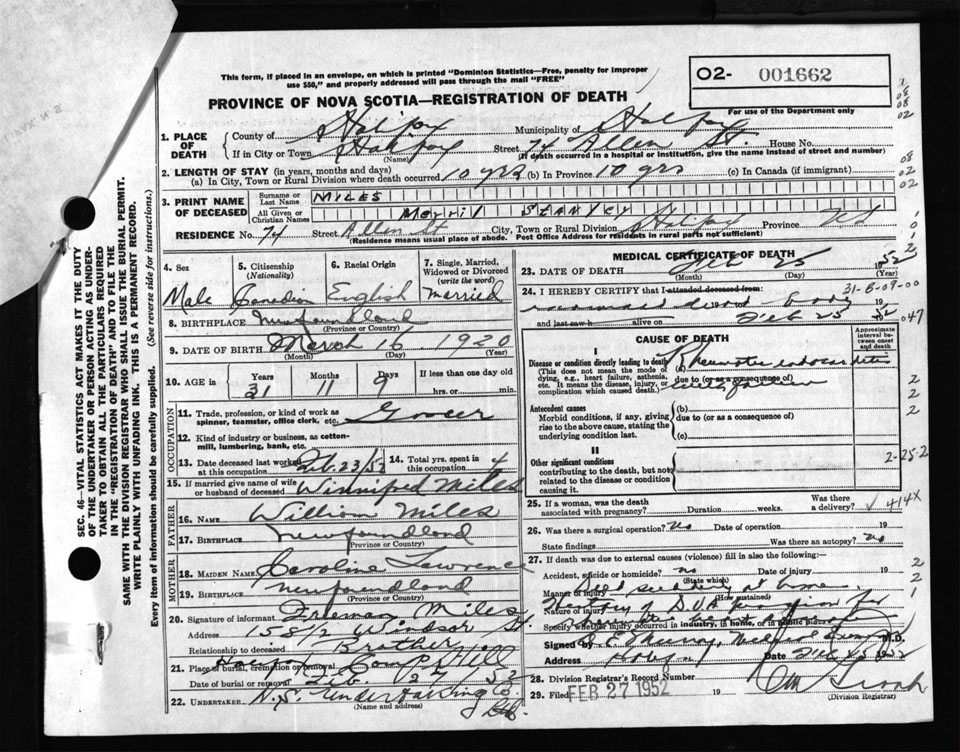 This form, if placed in an envelope, on which is printed "Dominion Statistics—Free, penalty for improper
use $50," and properly addressed will pass through the mail "FREE"
O2- 001662
For use of the Department only
PROVINCE OF NOVA SCOTIA—REGISTRATION OF DEATH
1. PLACE OF DEATH
County of Halifax Municipality of Halifax
If in City or Town Halifax Street 74 Allen St. House No.
(Name) (If death occurred in a hospital or institution, give the name instead of street and number)
2. LENGTH OF STAY (in years, months and days)
(a) In City, Town or Rural Division where death occurred 10 yrs (b) In Province 10 yrs (c) In Canada (if immigrant)
3. PRINT NAME OF DECEASED
Surname or Last Name MILES
All Given or Christian Names Merril Stanley
RESIDENCE No. 74 Street Allen St City, Town or Rural Division Halifax Province N.S
(Residence means usual place of abode. Post Office Address for residents in rural parts not sufficient)
4. Sex
Male
5. Citizenship (Nationality)
Canadian
6. Racial Origin
English
7. Single, Married, Widowed or Divorced (write the word)
Married
8. BIRTHPLACE Newfoundland
(Province or Country)
9. DATE OF BIRTH March 16 1920
(Month) (Day) (Year)
10. AGE in Years Months Days If less than one day old
31 11 9 hrs. or min.
OCCUPATION
11. Trade, profession, or kind of work as
spinner, teamster, office clerk, etc. Grocer
12. Kind of industry or business, as cotton-
mill, lumbering, bank, etc.
13. Date deceased last worked at this occupation Feb. 23/52
14. Total yrs. spent in this occupation 4
15. If married give name of wife or husband of deceased Winnifred Miles
FATHER
16. NAME William Miles
17. BIRTHPLACE Newfoundland
(Province or Country)
MOTHER
18. MAIDEN NAME Caroline Lawrence
19. BIRTHPLACE Newfoundland
(Province or Country)
20. Signature of informant Freeman Miles
Address 158½ Windsor St.
Relationship to deceased Brother
21. Place of burial, cremation or removal Halifax Camp Hill
Date of burial or removal Feb. 27 1952
22. UNDERTAKER N.S. Undertaking Co. Ltd.
(Name and address)
MEDICAL CERTIFICATE OF DEATH
23. DATE OF DEATH Feb 25 1952
(Month) (Day) (Year)
24. I HEREBY CERTIFY that I attended deceased from:
31-8-09-00
dead body 19
and last saw h alive on Feb 25 52
047
CAUSE OF DEATH
Approximate interval between onset and death
I
Disease or condition directly leading to death
(This does not mean the mode of dying, e.g., heart failure, asthenia, etc. It means the disease, injury, or complication which caused death.)
due to (or as a consequence of)
Rheumatic endocarditis
Antecedent causes
Morbid conditions, if any, giving rise to the above cause, stating the underlying condition last.
(b)
due to (or as a consequence of)
(c)
II
Other significant conditions
contributing to the death, but not related to the disease or condition causing it.
2-25-2
25. If a woman, was the death associated with pregnancy? Duration weeks. Was there a delivery?
414X
26. Was there a surgical operation? No Date of operation 19
State findings Was there an autopsy? No
27. If death was due to external causes (violence) fill in also the following:—
Accident, suicide or homicide? no Date of injury 19
(State which)
Manner of injury Died suddenly at home.
(How sustained)
Nature of injury History of D.V.A. pension for
Specify whether injury occurred in industry, in home, or in public place
Signed by Medical M.D.
Address Date Feb 25 1952
28. Division Registrar's Record Number
29. Filed FEB 27 1952 19
(Division Registrar)
SEC. 46—VITAL STATISTICS ACT MAKES IT THE DUTY
OF THE UNDERTAKER OR PERSON ACTING AS UNDER-
TAKER TO OBTAIN ALL THE PARTICULARS REQUIRED
IN THE "REGISTRATION OF DEATH" AND TO FILE THE
SAME WITH THE DIVISION REGISTRAR WHO SHALL ISSUE THE BURIAL PERMIT.
WRITE PLAINLY WITH UNFADING INK. THIS IS A PERMANENT RECORD.
Every item of information should be carefully supplied. (See reverse side for instructions.)